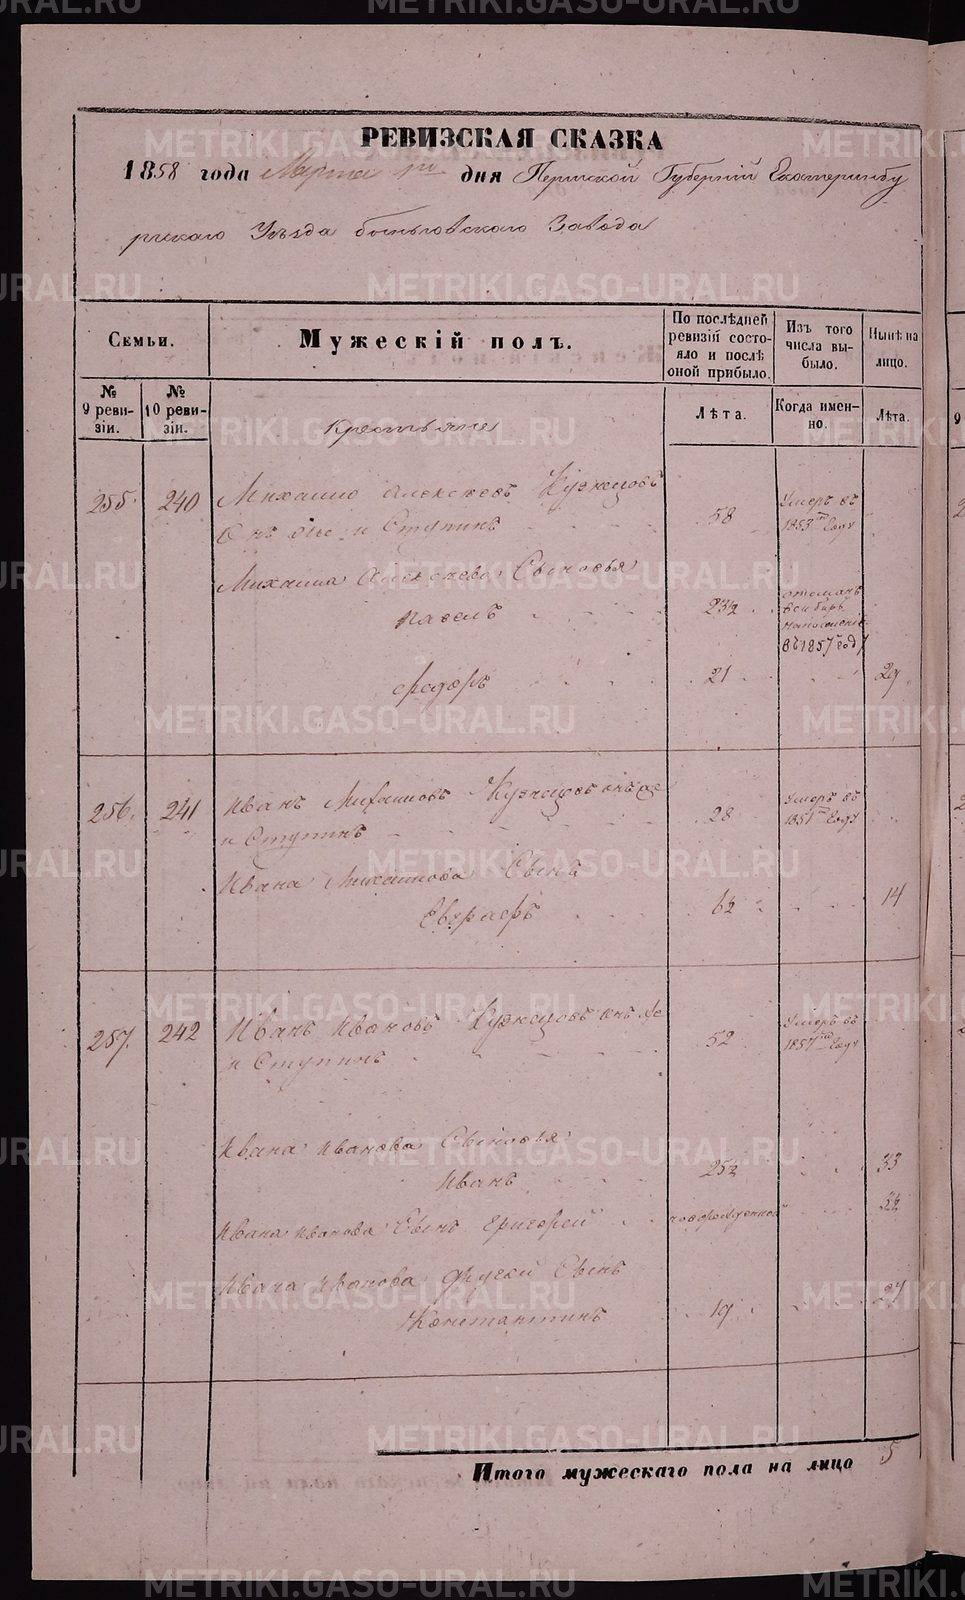 РЕВИЗСКАЯ СКАЗКА
1858 года Марта 1го дня Пермской Губернии Екатеринбу
ргскаго Уѣзда Завода
Семьи.
Мужескій полъ.
По послѣдней ревизій состояло и послѣ оной прибыло.
Изъ того числа выбыло.
Нынѣ на лицо.
№ 9 ревизіи.
№ 10 ревизіи.
Крестьяне
Лѣта.
Когда именно.
Лѣта.
255. 240 Михаило Алексѣевъ Кузнецовъ
Онъ же и Ступинъ 58 Умеръ въ 1853 году
Михаила Алексѣева Сыновья
Павелъ 23½ въ Сибирь в 1857 году
Федоръ 21 29
256. 241 Иванъ Михаиловъ Кузнецовъ онъ же
и Ступинъ 28 Умеръ въ 1851 году
Ивана Михаилова Сынъ
Евграфъ 6½ 14
257. 242 Иванъ Ивановъ Кузнецовъ онъ же
и Ступинъ 52 Умеръ въ 1857 году
Ивана Иванова Сыновья
Иванъ 25½ 33
Ивана Иванова Сынъ Григорей новорожденной
Ивана Иванова Другой Сынъ
Константинъ 19 27
Итого мужескаго пола на лицо 5
METRIKI.GASO-URAL.RU